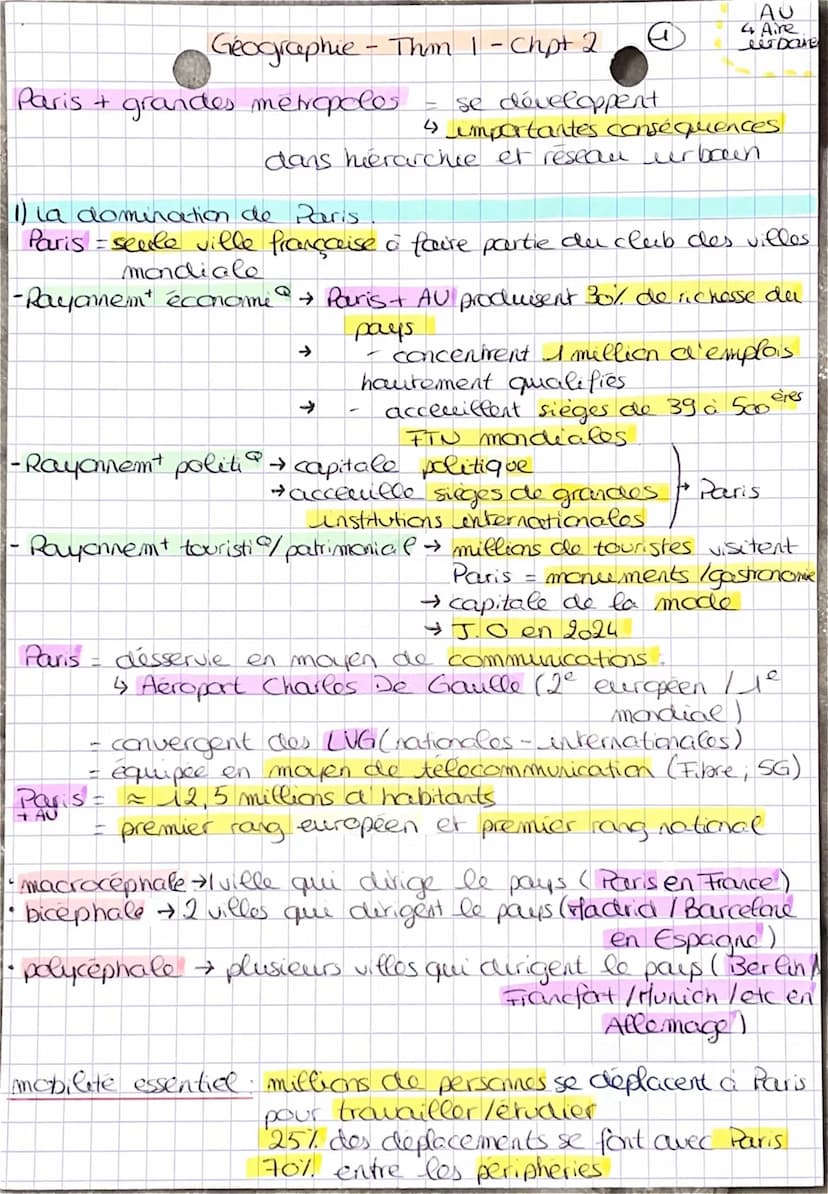 Géographie - Thm 1 - Chpt 2
1
AU
↳ Aire
urbaine
Paris + grandes métropoles = se développent
↳ importantes conséquences
dans hiérarchie et réseau urbain
1) La domination de Paris.
Paris = seule ville française à faire partie du club des villes
mondiale
- Rayonnem^t économi^Q → Paris + AU produisent 30% de richesse du
pays
→ - concentrent 1 million d'emplois
hautement qualifiés
→ - acceuillent sièges de 39 à 500 ères
FTN mondiales
- Rayonnem^t politi^Q → capitale politique
→ acceuille sièges de grandes
institutions internationales
→ Paris
- Rayonnem^t touristi^Q / patrimonial → millions de touristes visitent
Paris = monuments / gastronomie
→ capitale de la mode
→ J.O en 2024
Paris = désservie en moyen de communications.
↳ Aéroport Charles De Gaulle (2e européen / 1e
mondial)
= convergent des LVG (nationales - internationales)
= équipée en moyen de télécommunication (Fibre, 5G)
Paris = ≈ 12,5 millions d'habitants
+ AU
= premier rang européen et premier rang national
• macrocéphale → 1 ville qui dirige le pays (Paris en France)
• bicéphale → 2 villes qui dirigent le pays (Madrid / Barcelone
en Espagne)
• polycéphale → plusieurs villes qui dirigent le pays (Berlin /
Francfort / Munich / etc en
Allemage)
mobilité essentiel : millions de personnes se déplacent à Paris
pour travailler / étudier
25% des déplacements se font avec Paris
70% entre les péripheries